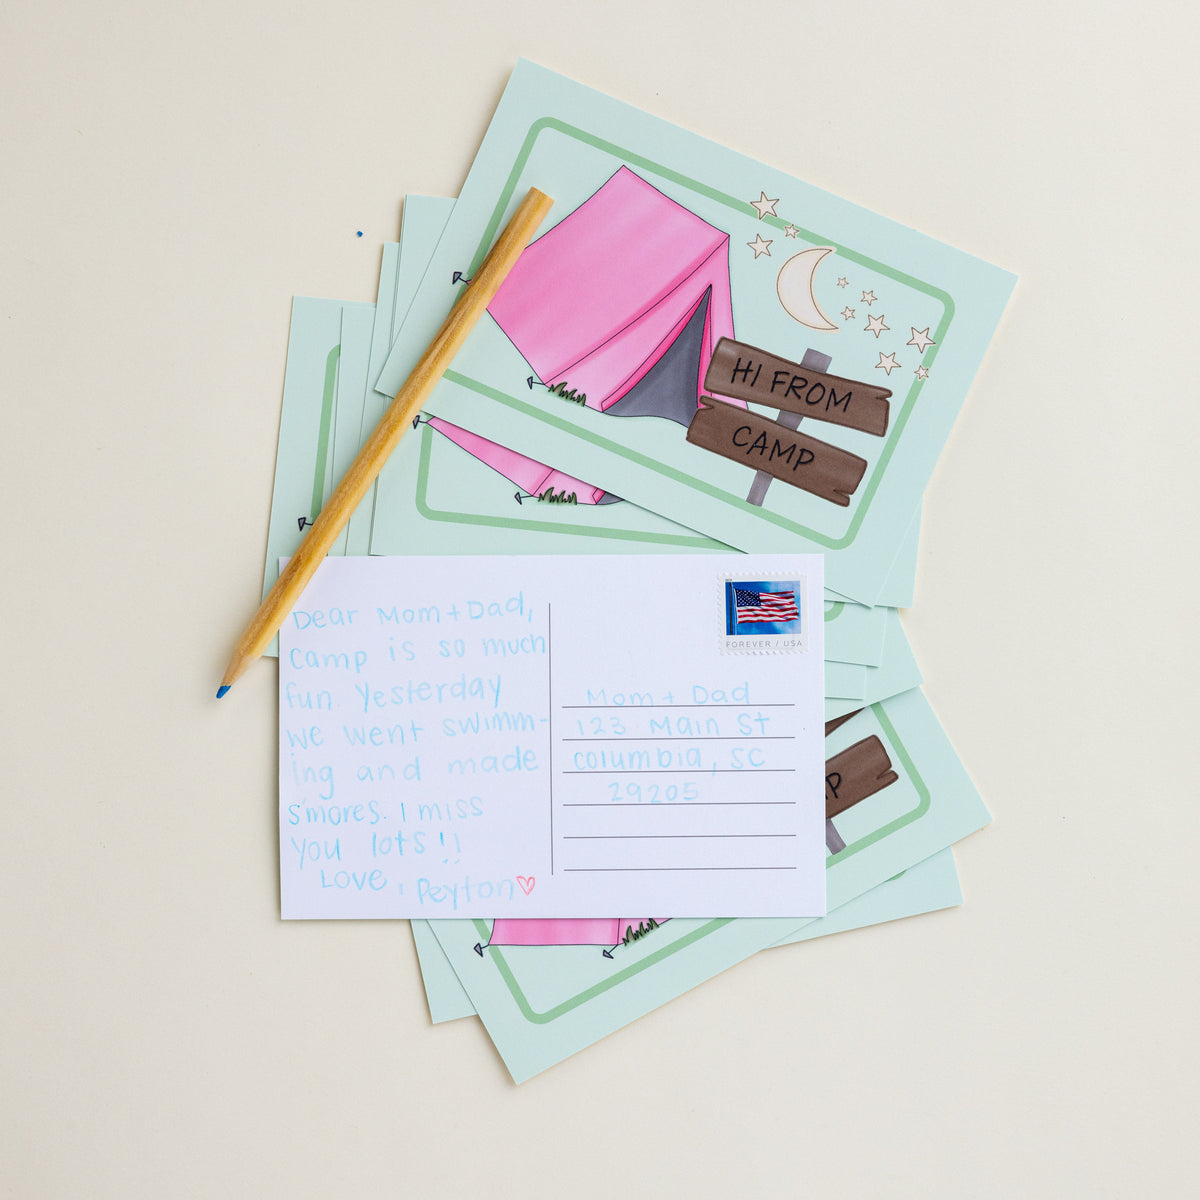 HI FROM
CAMP
Dear Mom + Dad,
Camp is so much
fun. Yesterday
we went swimm-
ing and made
s'mores. I miss
you lots!!
Love, Peyton
FOREVER / USA
Mom + Dad
123 Main St
Columbia, SC
29205
MP